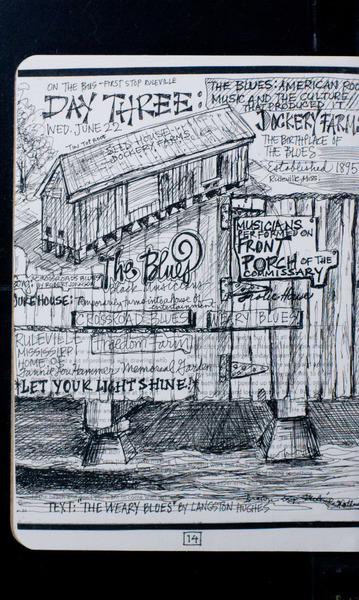 ON THE BUS - FIRST STOP RULEVILLE
DAY THREE:
WED. JUNE 22
THE BLUES: AMERICAN ROO
MUSIC AND THE CULTURE
THAT PRODUCED IT
DOCKERY FARMS
THE BIRTHPLACE OF
THE BLUES
Established 1895
Ruleville, Miss.
TIN TOP ROOF
SEED HOUSE
DOCKERY FARMS
MUSICIANS
PERFORMED ON
FRONT
PORCH OF THE
COMMISSARY
The Blues
Black musicians
SONG: CROSSROADS BLUES
BY ROBERT JOHNSON
JUKE HOUSE: Temporarily turns into a house of
entertainment
Frolic House
CROSSROAD BLUES
WEARY BLUES
RULEVILLE
MISSISSIPPI
Freedom Farm
HOME OF
Fannie Lou Hammer Memorial Garden
*LET YOUR LIGHT SHINE!*
TEXT: "THE WEARY BLUES" BY LANGSTON HUGHES
14